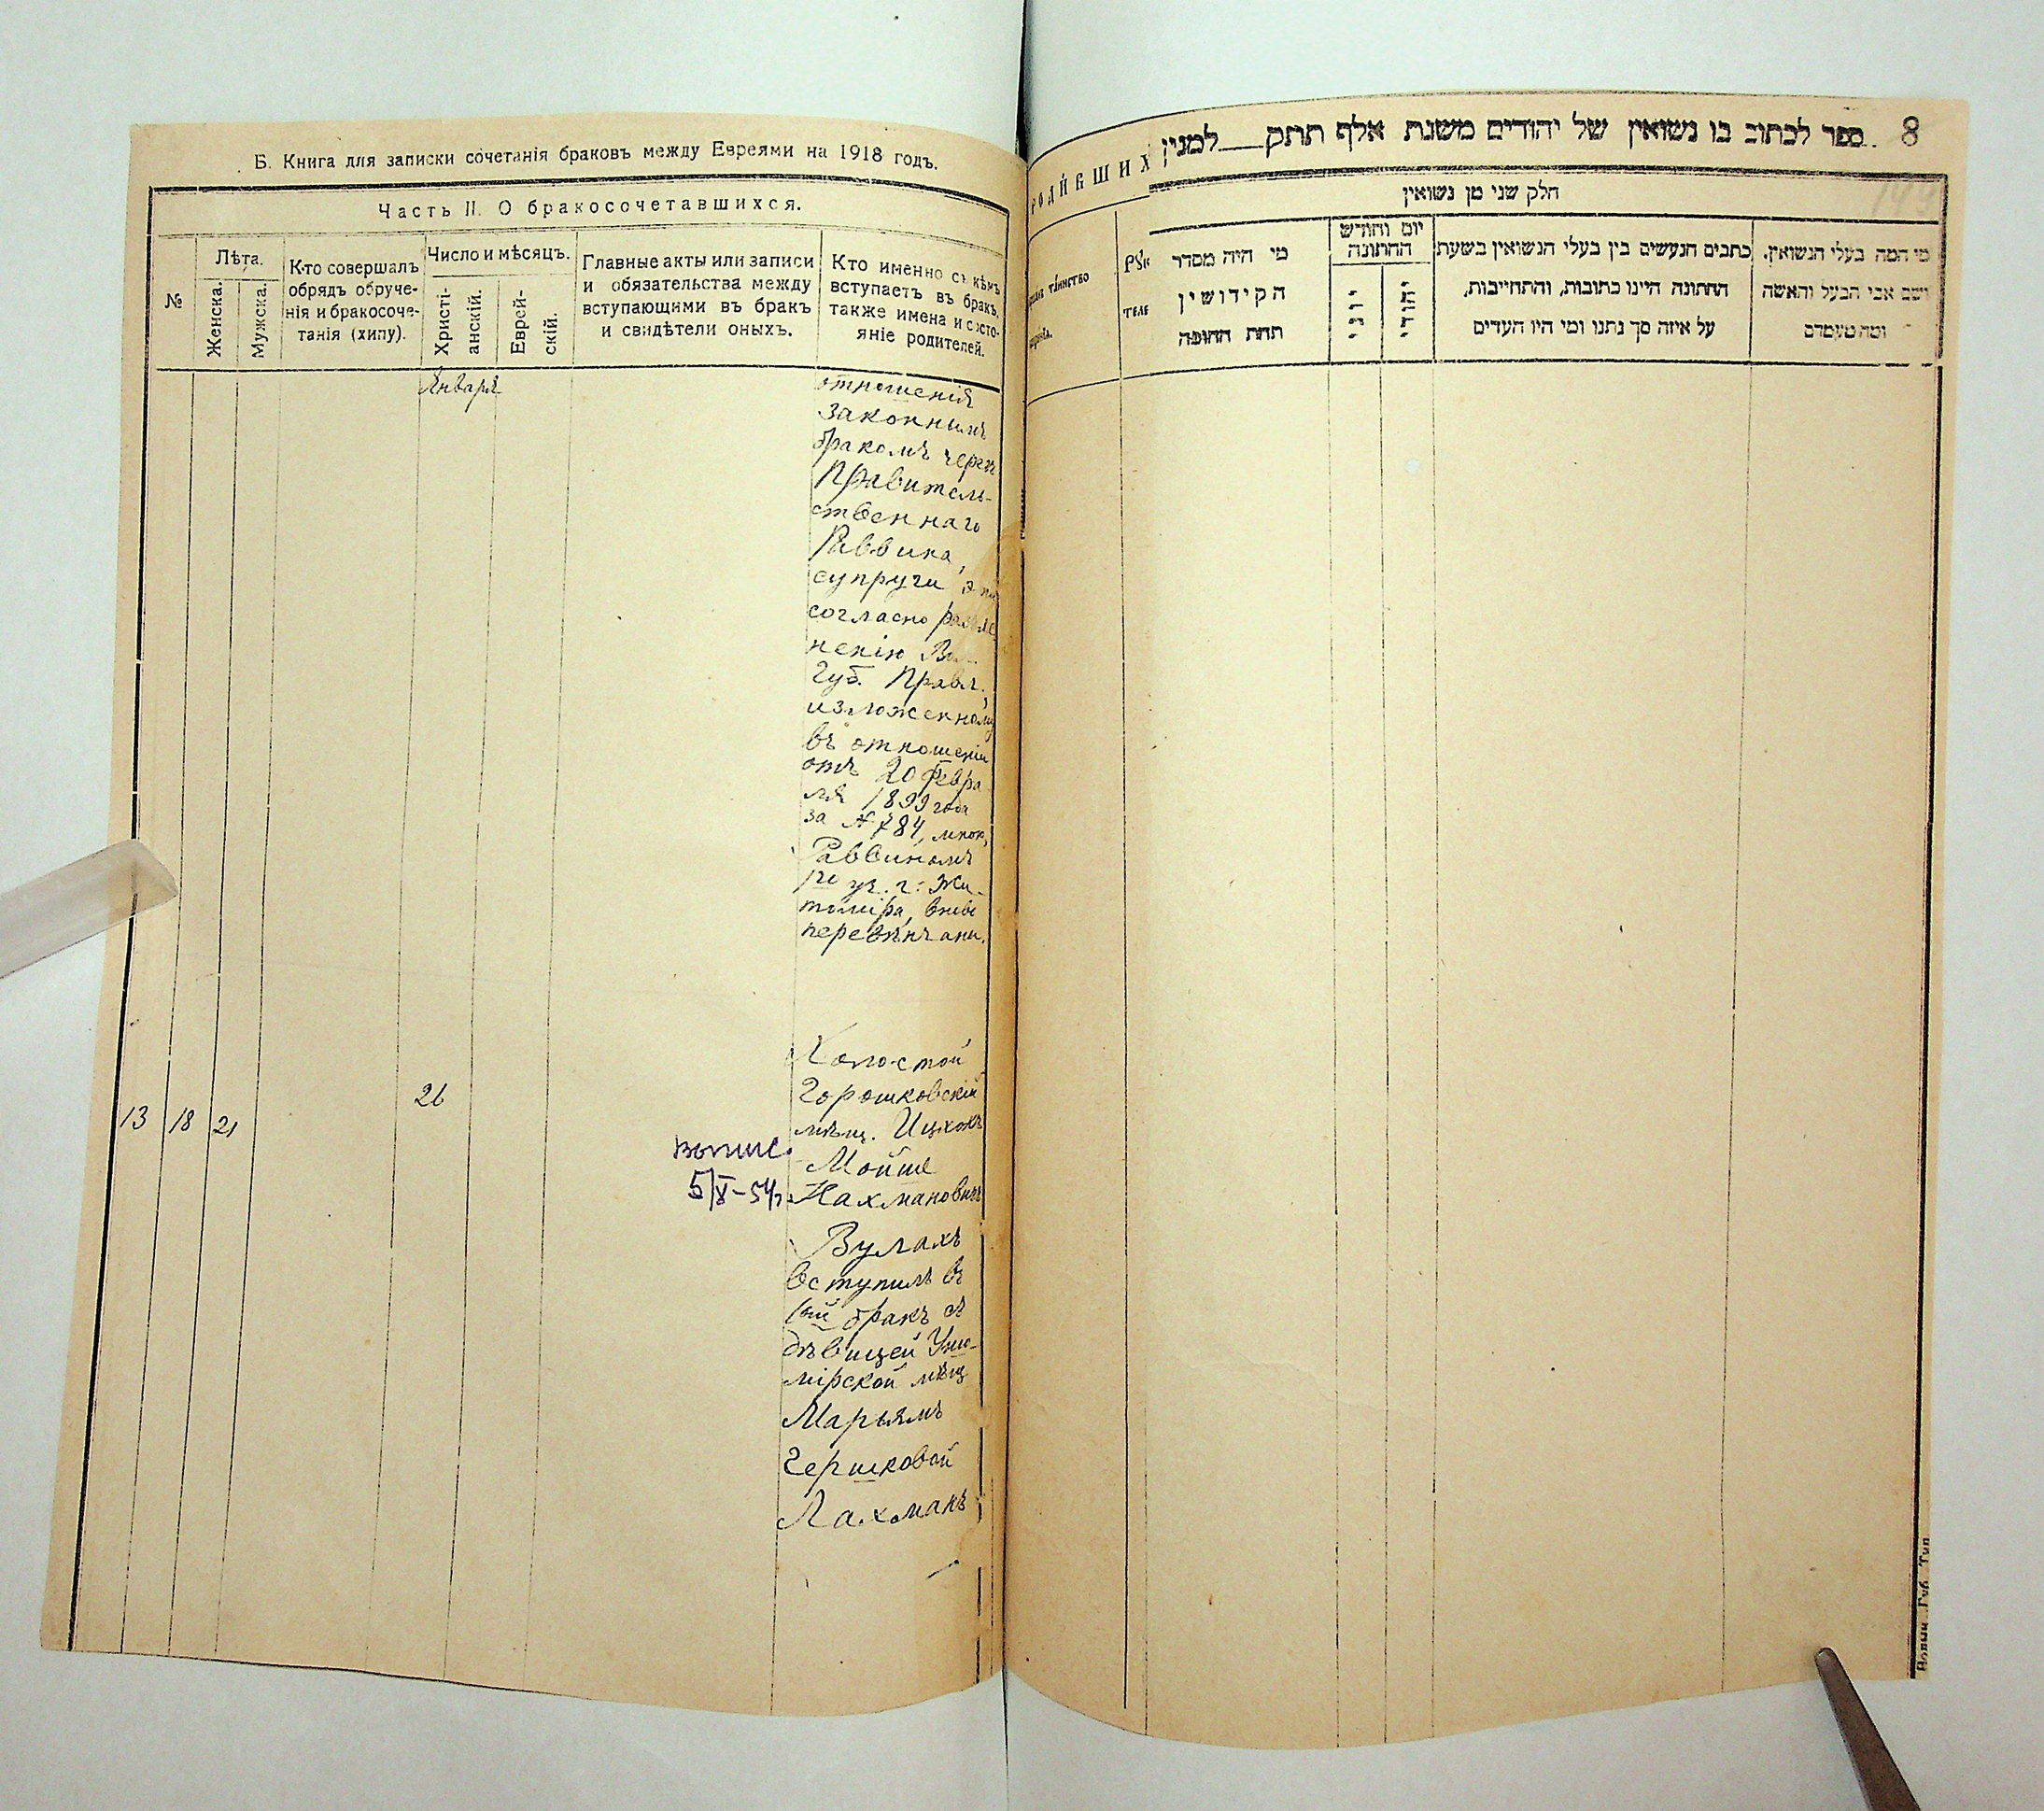 Б. Книга для записки сочетанія браковъ между Евреями на 1918 годъ.
Часть II. О бракосочетавшихся.
№
Лѣта.
Женска.
Мужска.
Кто совершалъ
обрядъ обруче-
нія и бракосоче-
танія (хипу).
Число и мѣсяцъ.
Христі-
анскій.
Еврей-
скій.
Главные акты или записи
и обязательства между
вступающими въ бракъ
и свидѣтели оныхъ.
Кто именно съ кѣмъ
вступаетъ въ бракъ,
также имена и состо-
яніе родителей.
Января
отношенія
законнымъ
бракомъ черезъ
Правитель-
ственнаго
Раввина,
супруги
согласно
ненію
Губ. Правл.,
изложенному
въ отношеніи
отъ 20 Февра
ля 1899 года
за № 784, мною,
Раввиномъ
1го уч. г. Жи-
томіра, вновь
перевѣнчаны.
13 18 21
26
Холостой
Горошковскій
мѣщ. Ицхокъ
Мойше
Нахмановичъ
Вулахъ
вступилъ въ
1ый бракъ съ
дѣвицей Уша-
мірской мѣщ
Марьямъ
Гершковой
Лахманъ
выпис.
5/X-54г.
8
ספר לכתוב בו נשואין של יהודים משנת אלף תתק למנין
РОДИВШИХ
חלק שני מן נשואין
מי היה מסדר
הקידושין
תחת החופה
יום וחודש
החתונה
יוני
יהודי
כתבים הנעשים בין בעלי הנשואין בשעת
החתונה היינו כתובות, והתחייבות,
על איזה סך נתנו ומי היו העדים
מי המה בעלי הנשואין,
ושם אבי הבעל והאשה
ומה מעמדם
таинство
Волын. Губ. Тип.